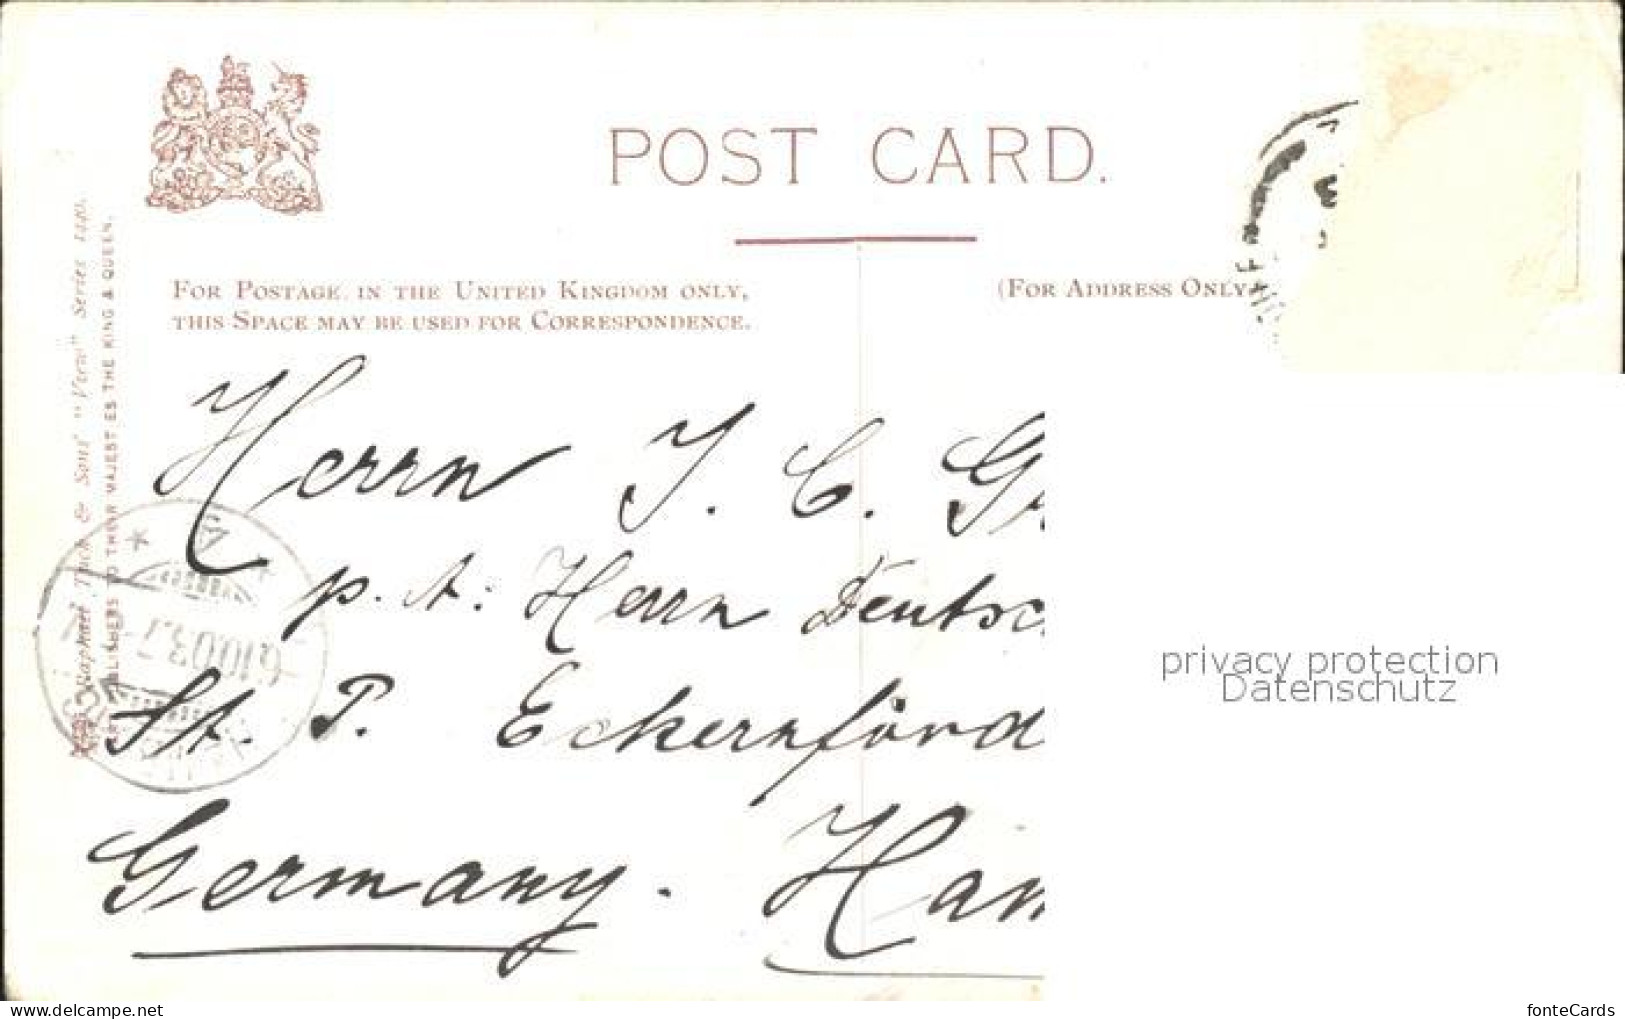 POST CARD.
FOR POSTAGE IN THE UNITED KINGDOM ONLY,
THIS SPACE MAY BE USED FOR CORRESPONDENCE.
(FOR ADDRESS ONLY
Raphael Tuck & Sons' "Verse" Series 1440.
PUBLISHERS TO THEIR MAJESTIES THE KING & QUEEN.
Herrn J. C. Gr
p. A: Herrn Deutsc
St. P. Eckernförd
Germany. Ham
privacy protection
Datenschutz
www.ansichtskarten-center.de
fonteCards